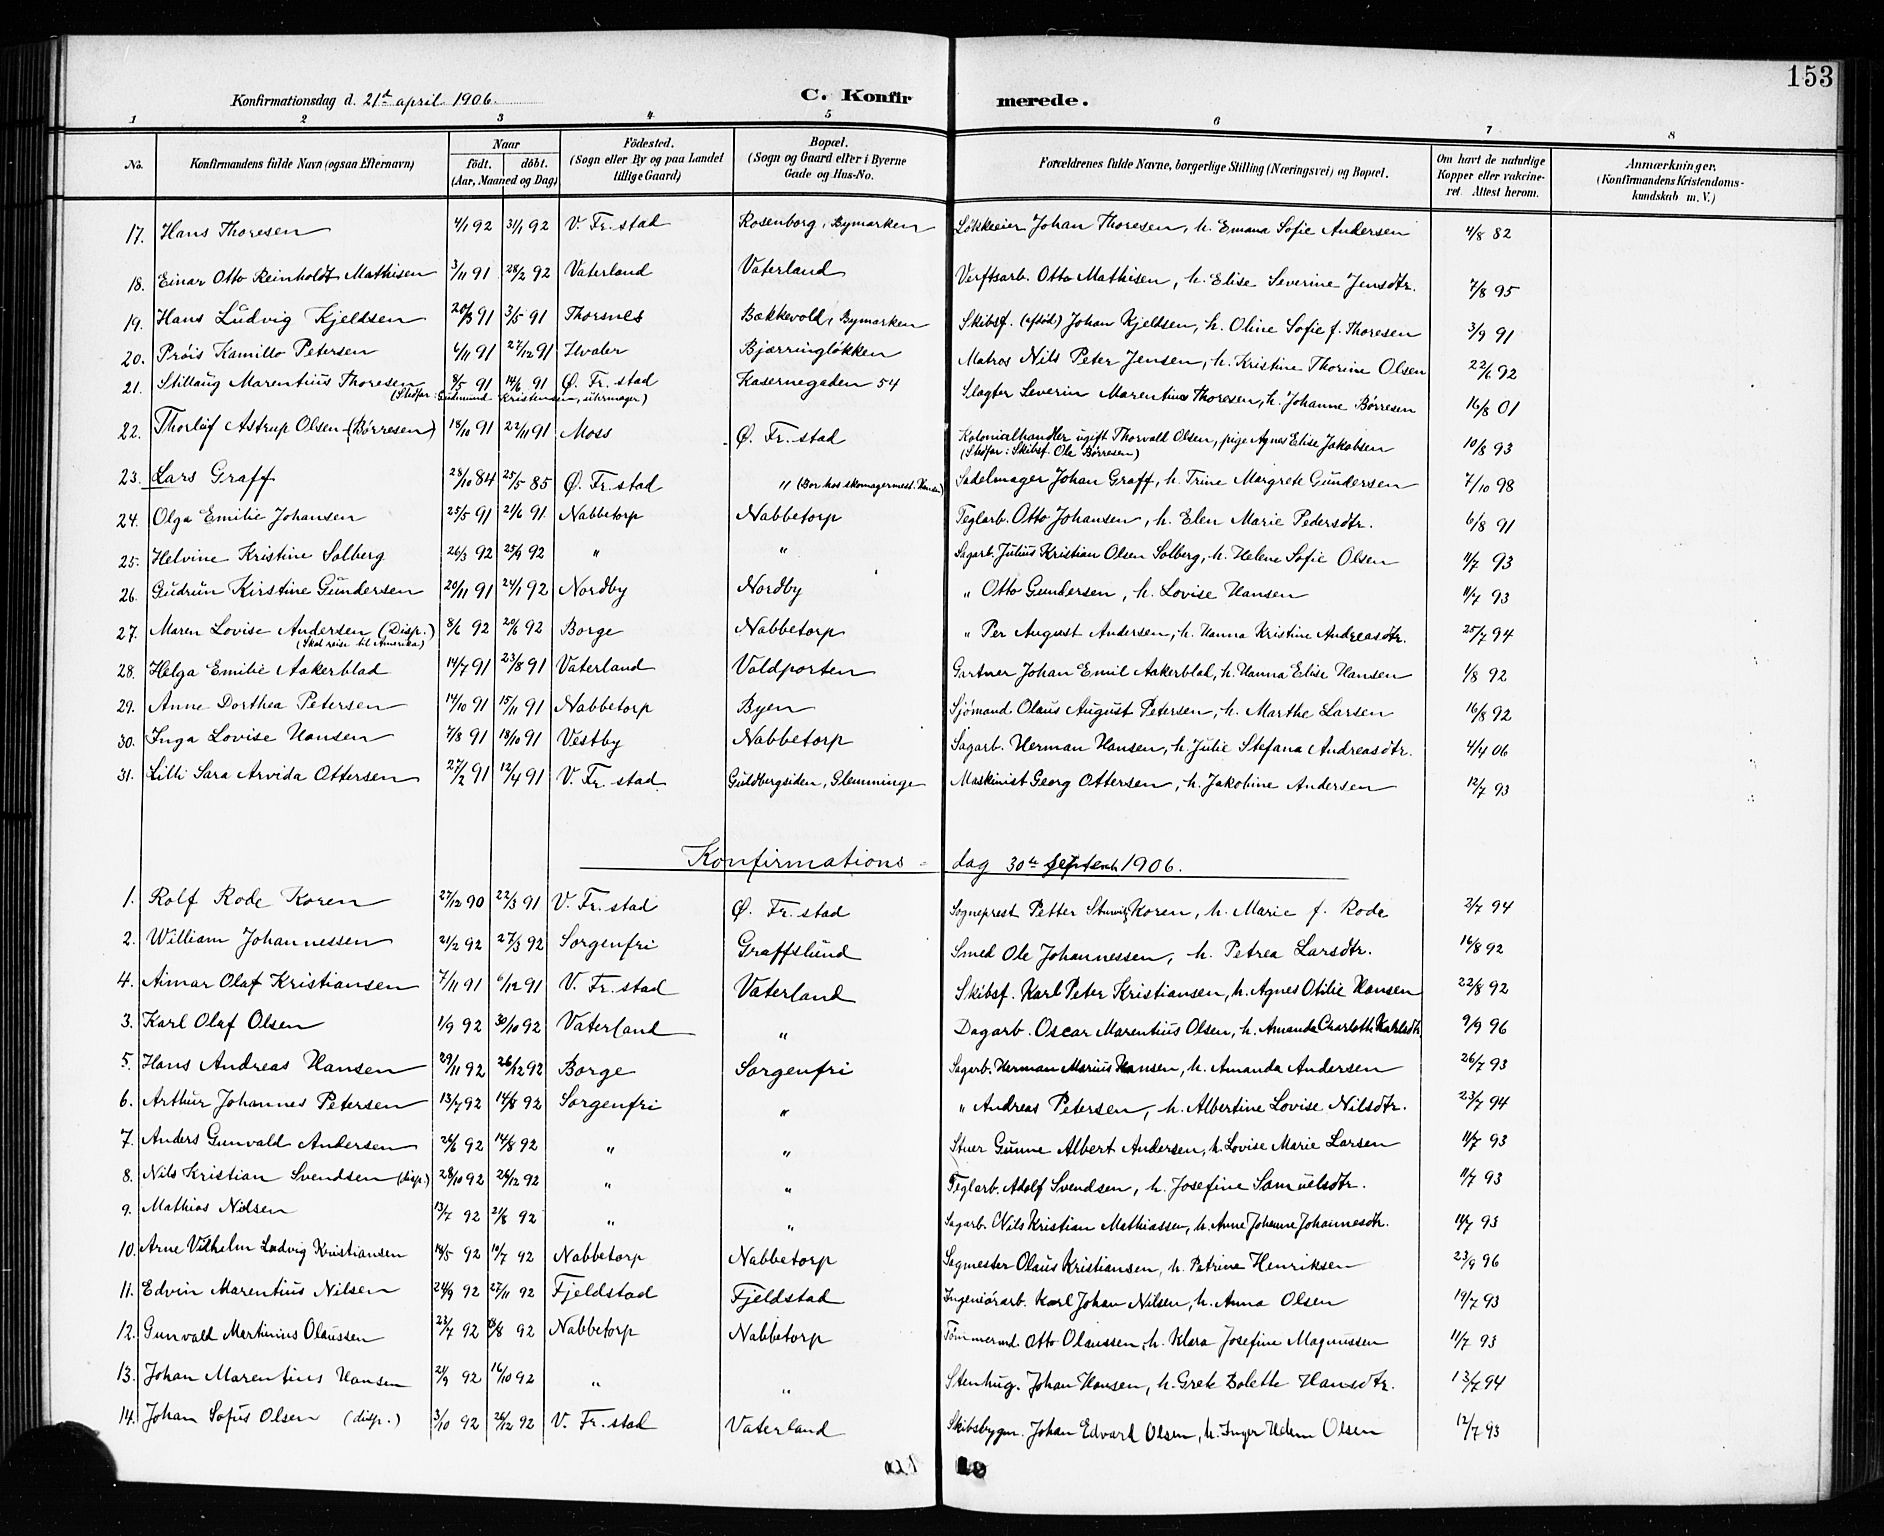 153
Konfirmationsdag d. 21de april 1906. C. Konfirmerede.
1 2 3 4 5 6 7 8
No. Konfirmandens fulde Navn (ogsaa Efternavn) Naar født. døbt. (Aar, Maaned og Dag) Födested. (Sogn eller By og paa Landet tillige Gaard) Bopæl. (Sogn og Gaard eller i Byerne Gade og Hus-No. Forældrenes fulde Navne, borgerlige Stilling (Næringsvei) og Bopæl. Om havt de naturlige Kopper eller vakcineret. Attest herom. Anmærkninger, (Konfirmandens Kristendomskundskab m. V.)
17. Hans Thoresen 4/1 92 31/1 92 V. Fr.stad Rosenborg, Bymarken Løkkeeier Johan Thoresen, h. Emana Sofie Andersen 4/8 82
18. Einar Otto Reinholdt Mathisen 3/11 91 28/2 92 Vaterland Vaterland Verftsarb. Otto Mathisen, h. Elise Severine Jensdtr. 7/8 95
19. Hans Ludvig Kjeldsen 20/3 91 3/5 91 Thorsnes Bækkevold, Bymarken Skibsf. (afdød) Johan Kjeldsen, h. Oline Sofie f. Thoresen 3/9 91
20. Prøis Kamillo Petersen 6/11 91 27/12 91 Hvaler Bjærringløkken Matros Nils Peter Jensen, h. Kristine Thorine Olsen 22/6 92
21. Stillaug Marentius Thoresen 9/5 91 14/6 91 Ø. Fr.stad Kasernegaden 54 Slagter Severin Marentius Thoresen, h. Johanne Børresen 16/8 01
(Stedfar: Gudmund Kristensen, uhrmager.)
22. Thorleif Astrup Olsen (Børresen) 18/10 91 22/11 91 Moss Ø. Fr.stad Kolonialhandler ugift Thorvald Olsen, pige Agnes Elise Jakobsen 10/8 93
(Stedfar: Skibsf. Ole Børresen)
23. Lars Graff 28/10 84 25/5 85 Ø. Fr.stad " (Bor hos skomagermest. Hansen) Sadelmager Johan Graff, h. Trine Margrete Gundersen 7/10 98
24. Olga Emilie Johansen 25/5 91 21/6 91 Nabbetorp Nabbetorp Teglarb. Otto Johansen, h. Elen Marie Pedersdtr. 6/8 91
25. Helvine Kristine Solberg 26/3 92 25/9 92 " " Sagarb. Julius Kristian Olsen Solberg, h. Helene Sofie Olsen 11/7 93
26. Gudrun Kirstine Gundersen 20/11 91 24/1 92 Nordby Nordby " Otto Gundersen, h. Lovise Hansen 11/7 93
27. Maren Lovise Andersen (Disp.) 8/6 92 20/6 92 Borge Nabbetorp " Per August Andersen, h. Hanna Kristine Andreasdtr. 25/7 94
(Skal reise til Amerika)
28. Helga Emilie Aakerblad 14/7 91 23/8 91 Vaterland Voldporten Gartner Johan Emil Aakerblad, h. Hanna Elise Hansen 1/8 92
29. Anne Dorthea Petersen 14/10 91 15/11 91 Nabbetorp Byen Sjømand Olaus August Petersen, h. Marthe Larsen 16/8 92
30. Inga Lovise Hansen 7/8 91 18/10 91 Vestby Nabbetorp Sagarb. Herman Hansen, h. Julie Stefana Andreasdtr. 4/4 06
31. Lilli Sara Arvida Ottersen 27/2 91 12/4 91 V. Fr.stad Guldbergsiden, Glemminge Maskinist Georg Ottersen, h. Jakobine Andersen 12/7 93
Konfirmationsdag 30te septemb 1906.
1. Rolf Rode Koren 27/12 90 22/3 91 V. Fr.stad Ø. Fr.stad Sogneprest Petter Koren, h. Marie f. Rode 2/7 94
2. William Johannessen 21/2 92 27/3 92 Sorgenfri Graffslund Smed Ole Johannessen, h. Petrea Larsdtr. 16/8 92
4. Aimar Olaf Kristiansen 7/11 91 6/12 91 V. Fr.stad Vaterland Skibsf. Karl Peter Kristiansen, h. Agnes Otilie Hansen 22/8 92
3. Karl Olaf Olsen 1/9 92 30/10 92 Vaterland " Dagarb. Oscar Marentius Olsen, h. Amanda Charlotte Karlsdtr. 9/9 96
5. Hans Andreas Hansen 29/11 92 26/12 92 Borge Sorgenfri Sagarb. Herman Marius Hansen, h. Amanda Andersen 26/7 93
6. Arthur Johannes Petersen 13/7 92 14/8 92 Sorgenfri " " Andreas Petersen, h. Albertine Lovise Nilsdtr. 23/7 94
7. Anders Gunvald Andersen 26/6 92 14/8 92 " " Stuer Gunne Albert Andersen, h. Lovise Marie Larsen 11/7 93
8. Nils Kristian Svendsen (disp.) 28/10 92 26/12 92 " " Teglarb. Adolf Svendsen, h. Josefine Samuelsdtr. 11/7 93
9. Mathias Nilsen 13/7 92 21/8 92 " " Sagarb. Nils Kristian Mathiassen, h. Anne Johanne Johannesdtr. 14/7 93
10. Arne Vilhelm Ludvig Kristiansen 18/5 92 10/7 92 Nabbetorp Nabbetorp Sagmester Olaus Kristiansen, h. Petrine Henriksen 23/9 96
11. Edvin Marentius Nilsen 24/9 92 27/11 92 Fjeldstad Fjeldstad Ingeniörarb. Karl Johan Nilsen, h. Anna Olsen 19/7 93
12. Gunvald Martinius Olaussen 23/7 92 /8 92 Nabbetorp Nabbetorp Tömmermd. Otto Olaussen, h. Klara Josefine Magnussen 11/7 93
13. Johan Marentius Hansen 21/9 92 16/10 92 " " Stenhug. Johan Hansen, h. Grete Bolette Hansdtr. 13/7 94
14. Johan Sofus Olsen (disp.) 3/10 92 26/12 92 V. Fr.stad Vaterland Skibsbygm. Johan Edvard Olsen, h. Inger Olsen 12/7 93